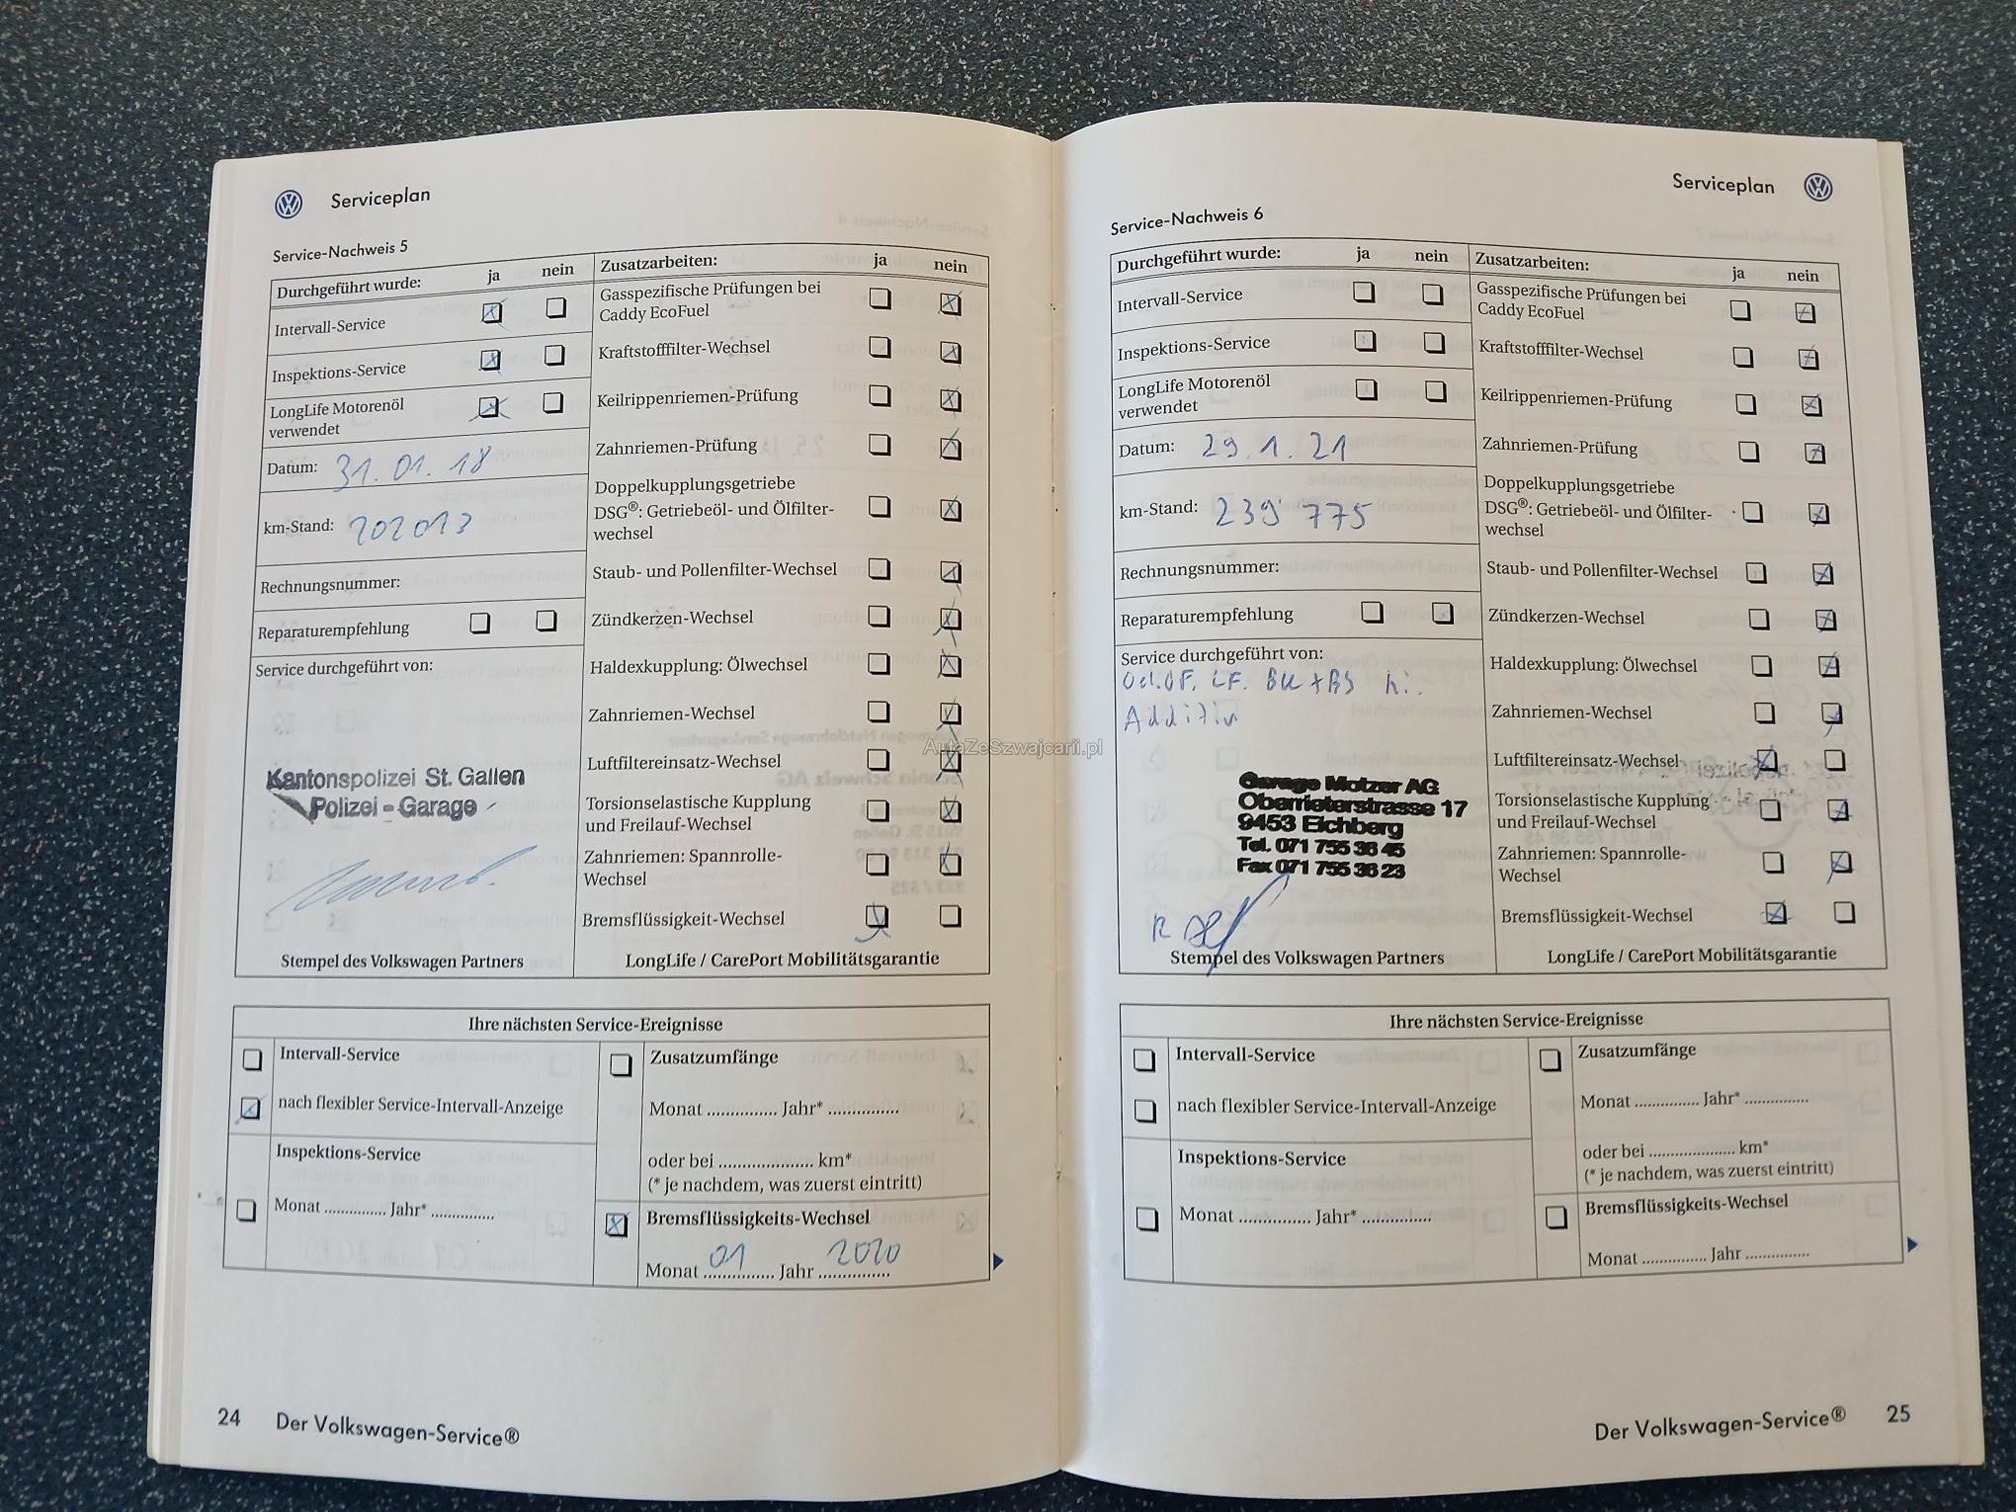 Serviceplan
Service-Nachweis 5
Durchgeführt wurde: ja nein
Intervall-Service
Inspektions-Service
LongLife Motorenöl
verwendet
Datum: 31.01.18
km-Stand: 202013
Rechnungsnummer:
Reparaturempfehlung
Service durchgeführt von:
Kantonspolizei St. Gallen
Polizei - Garage
Stempel des Volkswagen Partners
Zusatzarbeiten: ja nein
Gasspezifische Prüfungen bei
Caddy EcoFuel
Kraftstofffilter-Wechsel
Keilrippenriemen-Prüfung
Zahnriemen-Prüfung
Doppelkupplungsgetriebe
DSG®: Getriebeöl- und Ölfilter-
wechsel
Staub- und Pollenfilter-Wechsel
Zündkerzen-Wechsel
Haldexkupplung: Ölwechsel
Zahnriemen-Wechsel
Luftfiltereinsatz-Wechsel
Torsionselastische Kupplung
und Freilauf-Wechsel
Zahnriemen: Spannrolle-
Wechsel
Bremsflüssigkeit-Wechsel
LongLife / CarePort Mobilitätsgarantie
Ihre nächsten Service-Ereignisse
Intervall-Service
nach flexibler Service-Intervall-Anzeige
Inspektions-Service
Monat ............... Jahr* ...............
Zusatzumfänge
Monat ............... Jahr* ...............
oder bei .................... km*
(* je nachdem, was zuerst eintritt)
Bremsflüssigkeits-Wechsel
Monat 01 Jahr 2020
24 Der Volkswagen-Service®
Serviceplan
Service-Nachweis 6
Durchgeführt wurde: ja nein
Intervall-Service
Inspektions-Service
LongLife Motorenöl
verwendet
Datum: 29.1.21
km-Stand: 239'775
Rechnungsnummer:
Reparaturempfehlung
Service durchgeführt von:
LF. BK + BS hi.
Additiv
Garage Motzer AG
Oberrieterstrasse 17
9453 Eichberg
Tel. 071 755 36 45
Fax 071 755 36 23
Stempel des Volkswagen Partners
Zusatzarbeiten: ja nein
Gasspezifische Prüfungen bei
Caddy EcoFuel
Kraftstofffilter-Wechsel
Keilrippenriemen-Prüfung
Zahnriemen-Prüfung
Doppelkupplungsgetriebe
DSG®: Getriebeöl- und Ölfilter-
wechsel
Staub- und Pollenfilter-Wechsel
Zündkerzen-Wechsel
Haldexkupplung: Ölwechsel
Zahnriemen-Wechsel
Luftfiltereinsatz-Wechsel
Torsionselastische Kupplung
und Freilauf-Wechsel
Zahnriemen: Spannrolle-
Wechsel
Bremsflüssigkeit-Wechsel
LongLife / CarePort Mobilitätsgarantie
Ihre nächsten Service-Ereignisse
Intervall-Service
nach flexibler Service-Intervall-Anzeige
Inspektions-Service
Monat ............... Jahr* ...............
Zusatzumfänge
Monat ............... Jahr* ...............
oder bei .................... km*
(* je nachdem, was zuerst eintritt)
Bremsflüssigkeits-Wechsel
Monat ............... Jahr ...............
Der Volkswagen-Service® 25
AutaZeSzwajcarii.pl